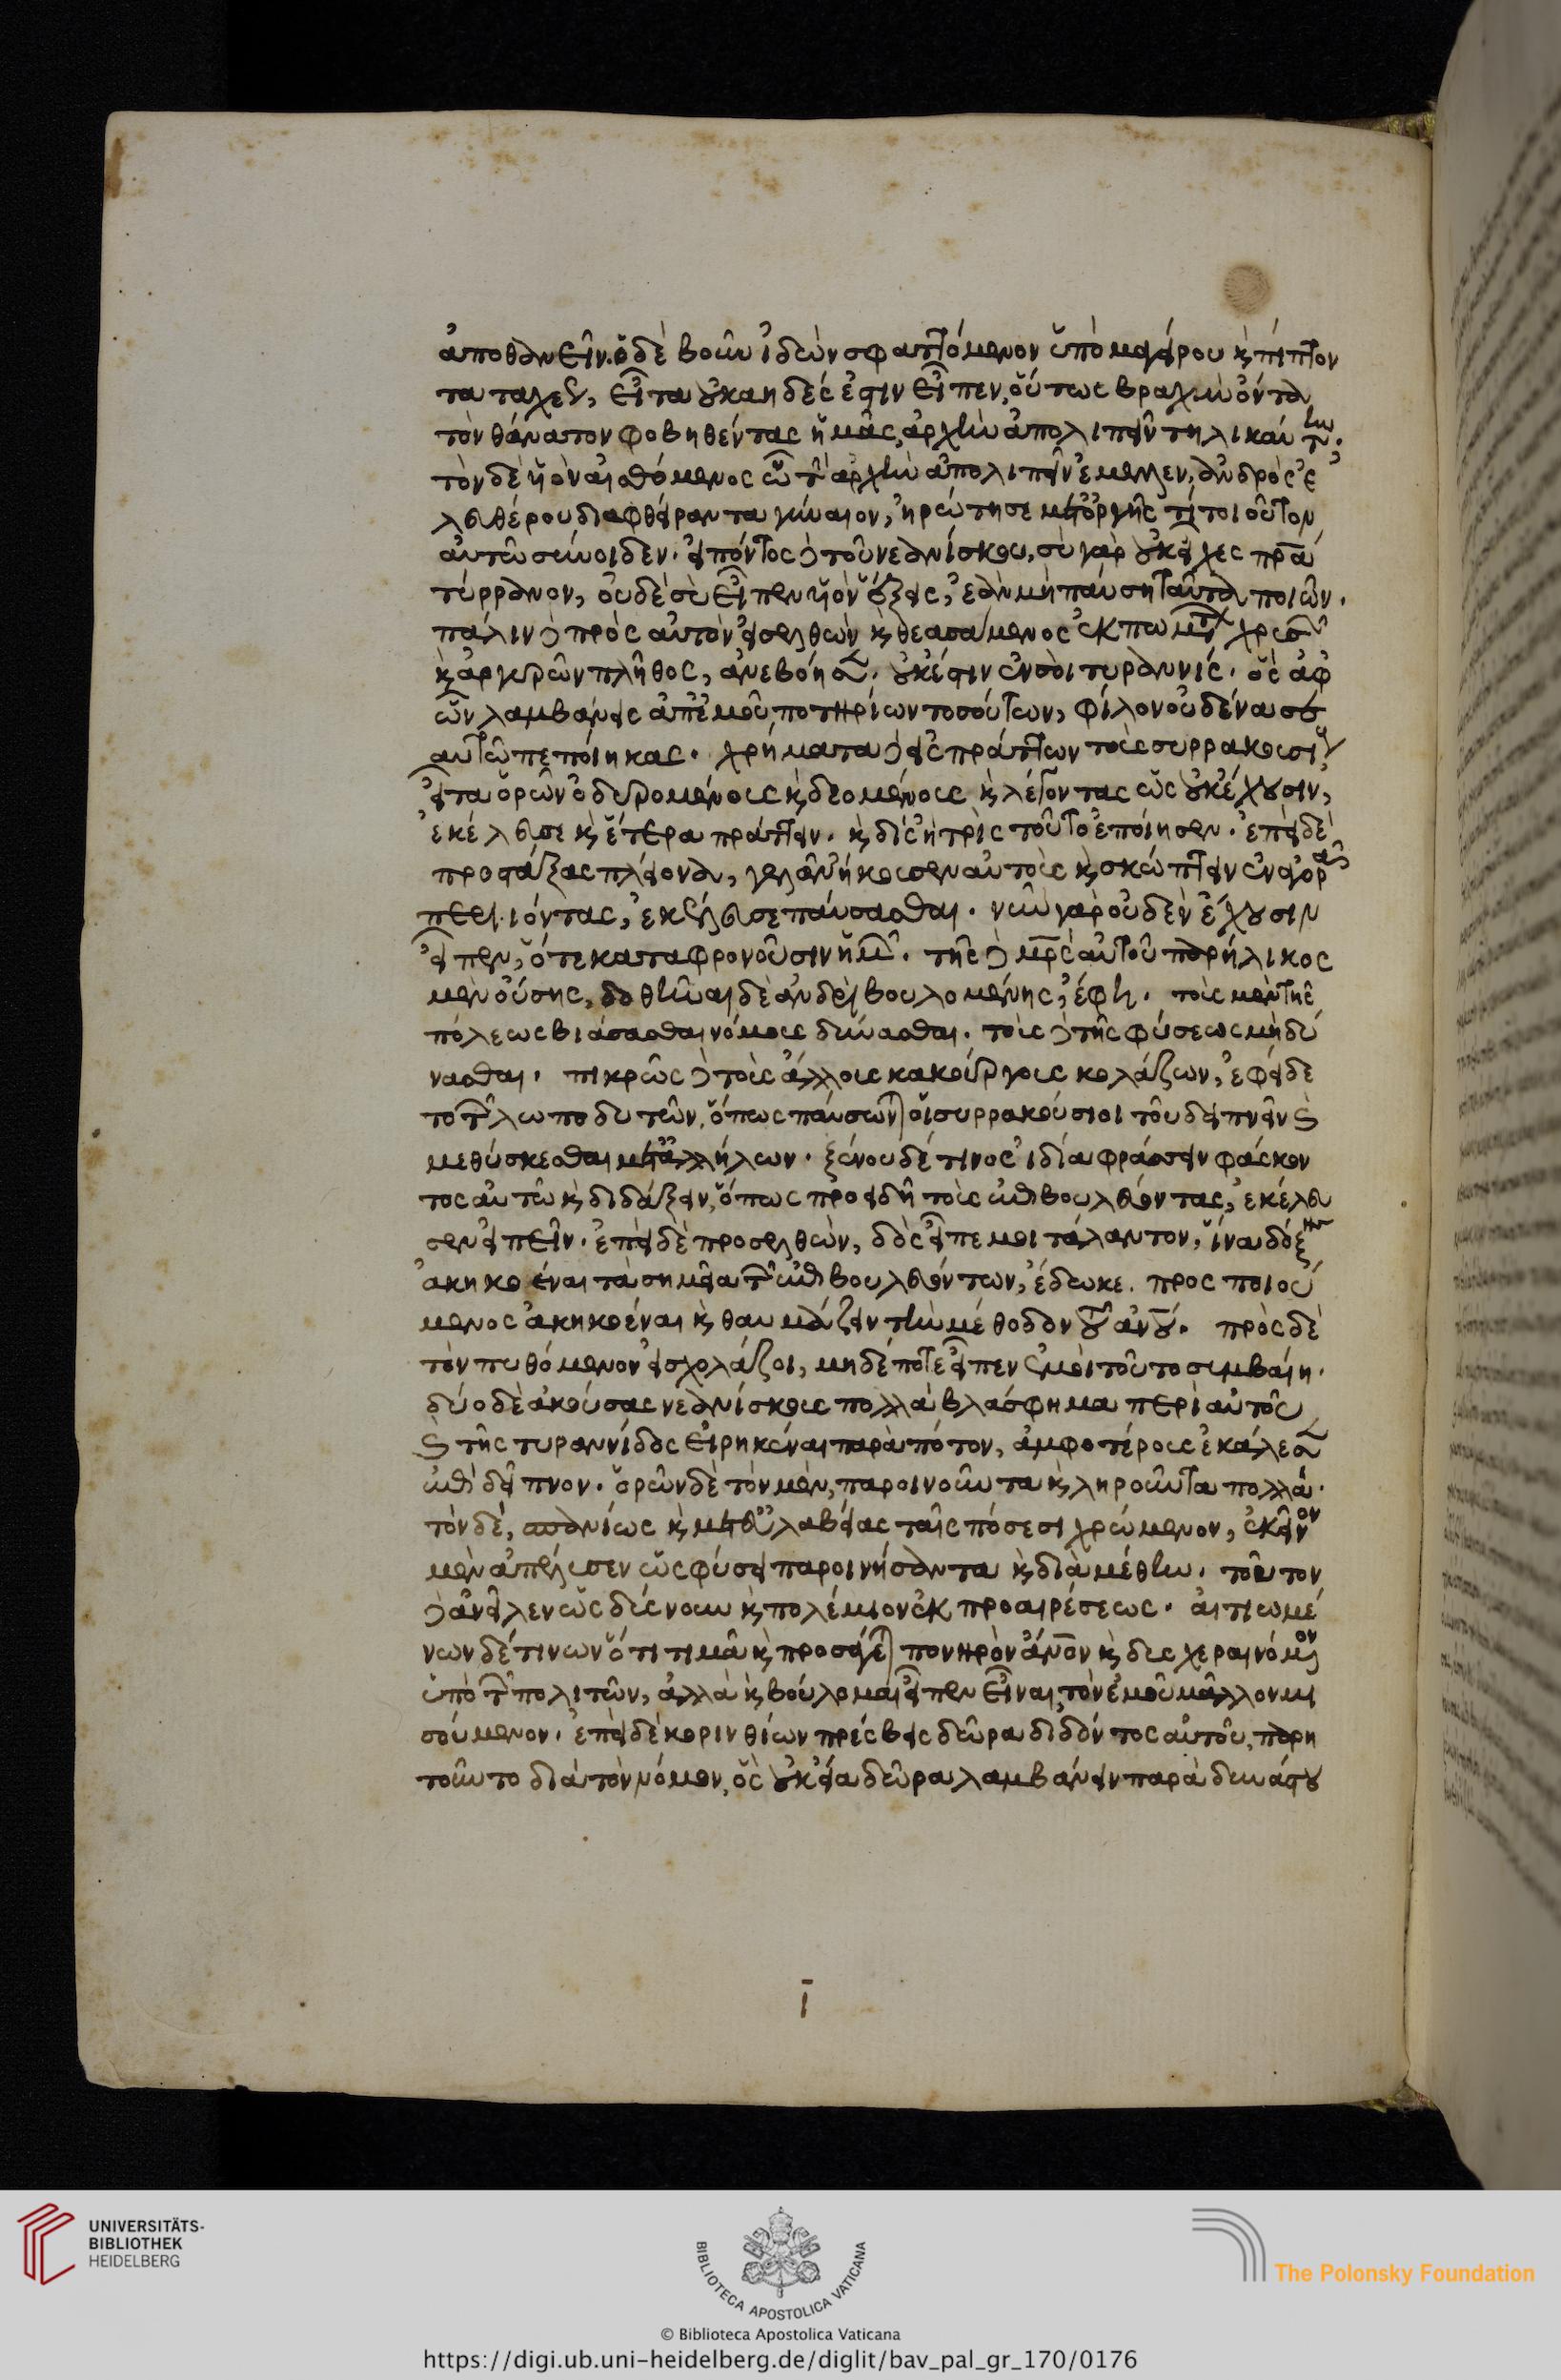 ἀποθανεῖν. ὁ δὲ βοῦν ἰδὼν σφαττόμενον ὑπὸ μαγείρου κ̀ πίπτον
τα ταχέως, εἶτα οὐκ ἀηδές ἐστιν εἶπεν, οὕτως βραχὺν ὄντα
τὸν θάνατον φοβηθέντας ἡμᾶς, ἀρχὴν ἀπολιπεῖν τηλικαύτην.
τὸν δὲ υἱὸν αἰσθόμενος ᾧ τ̑ ἀρχὴν ἀπολιπεῖν ἔμελλεν, ἀνδρὸς ἐ
λευθέρου διαφθείραντα γύναιον, ἠρώτησε μετ' ὀργῆς τί τοιοῦτον
αὐτῷ σύνοιδεν. εἰπόντος δὲ τοῦ νεανίσκου, σὺ γὰρ οὐκ εἶχες πρ̅α
τύρρανον, οὐδὲ σὺ εἶπεν υἱὸν ἕξεις, ἐὰν μὴ παύσῃ ταῦτα ποιῶν.
πάλιν δὲ πρὸς αὐτὸν εἰσελθὼν κ̀ θεασάμενος ἐκπωμάτων χρυσῶν
κ̀ ἀργυρῶν πλῆθος, ἀνεβόησε. οὐκ ἔστιν ἐν σοὶ τυραννίς. ὃς ἀφ'
ὧν λαμβάνεις ἀπ' ἐμοῦ ποτηρίων τοσούτων, φίλον οὐδένα σε
αυτῷ πεποίηκας. χρήματα δὲ εἰσπράττων τοὺς συρρακουσίους
εἶτα ὁρῶν ὀδυρομένους κ̀ δεομένους κ̀ λέγοντας ὡς οὐκ ἔχουσιν,
ἐκέλευσε κ̀ ἕτερα πράττειν. κ̀ δὶς ἢ τρὶς τοῦτο ἐποίησεν. ἐπεὶ δὲ
προστάξας πλείονα, γελᾶν ἤκουσεν αὐτοὺς κ̀ σκώπτειν ἐν ἀγορᾷ
περιιόντας, ἐκέλευσε παύσασθαι. νῦν γὰρ οὐδὲν ἔχουσιν
εἶπεν, ὅτε καταφρονοῦσιν ἡμῶν. τῆς δὲ μρ̅ς αὐτοῦ παρήλικος
μὲν οὔσης, δοθῆναι δὲ ἀνδρὶ βουλομένης, ἔφη. τοὺς μὲν τῆς
πόλεως βιάσασθαι νόμους δύνασθαι. τοὺς δὲ τῆς φύσεως μὴ δύ
νασθαι. πικρῶς δὲ τοὺς ἄλλους κακούργους κολάζων, ἐφείδε
το τ̑ λωποδυτῶν, ὅπως παύσωνται οἱ συρρακούσιοι τοῦ δειπνεῖν κ̀
μεθύσκεσθαι μετ' ἀλλήλων. ξένου δέ τινος ἰδίᾳ φράσειν φάσκον
τος αὐτῷ κ̀ διδάξειν, ὅπως προειδῇ τοὺς ἐπιβουλεύοντας, ἐκέλευ
σεν εἰπεῖν. ἐπεὶ δὲ προσελθὼν, δὸς εἶπε μοι τάλαντον, ἵνα δόξῃς
ἀκηκοέναι τὰ σημεῖα τ̑ ἐπιβουλευόντων, ἔδωκε. προσποιού
μενος ἀκηκοέναι κ̀ θαυμάζειν τὴν μέθοδον τοῦ ἀνου. πρὸς δὲ
τὸν πυθόμενον εἰ σχολάζοι, μηδέποτε εἶπεν ἐμοὶ τοῦτο συμβαίη.
δύο δὲ ἀκούσας νεανίσκους πολλὰ βλάσφημα περὶ αὐτοῦ
κ̀ τῆς τυραννίδος εἰρηκέναι παρὰ πότον, ἀμφοτέρους ἐκάλεσε
ἐπὶ δεῖπνον. ὁρῶν δὲ τὸν μὲν, παροινοῦντα κ̀ ληροῦντα πολλά.
τὸν δέ, σπανίως κ̀ μετ' εὐλαβείας ταῖς πόσεσι χρώμενον, ἐκεῖνον
μὲν ἀπέλυσεν ὡς φύσει παροινήσαντα κ̀ διὰ μέθην. τοῦτον
δὲ ἀνεῖλεν ὡς δύσνουν κ̀ πολέμιον ἐκ προαιρέσεως. αἰτιωμέ
νων δέ τινων ὅτι τιμᾷ κ̀ προσάγεται πονηρὸν ἄνον κ̀ δυσχεραινόμενον
ὑπὸ τ̑ πολιτῶν, ἀλλὰ κ̀ βούλομαι εἶπεν εἶναι, τὸν ἐμοῦ μᾶλλον μι
σούμενον. ἐπεὶ δὲ κορινθίων πρέσβεις δῶρα διδόντος αὐτοῦ, παρῃ
τοῦντο διὰ τὸν νόμον, ὃς οὐκ εἴα δῶρα λαμβάνειν παρὰ δυνάστου
ῑ
UNIVERSITÄTS-
BIBLIOTHEK
HEIDELBERG
BIBLIOTECA APOSTOLICA VATICANA
The Polonsky Foundation
© Biblioteca Apostolica Vaticana
https://digi.ub.uni-heidelberg.de/diglit/bav_pal_gr_170/0176